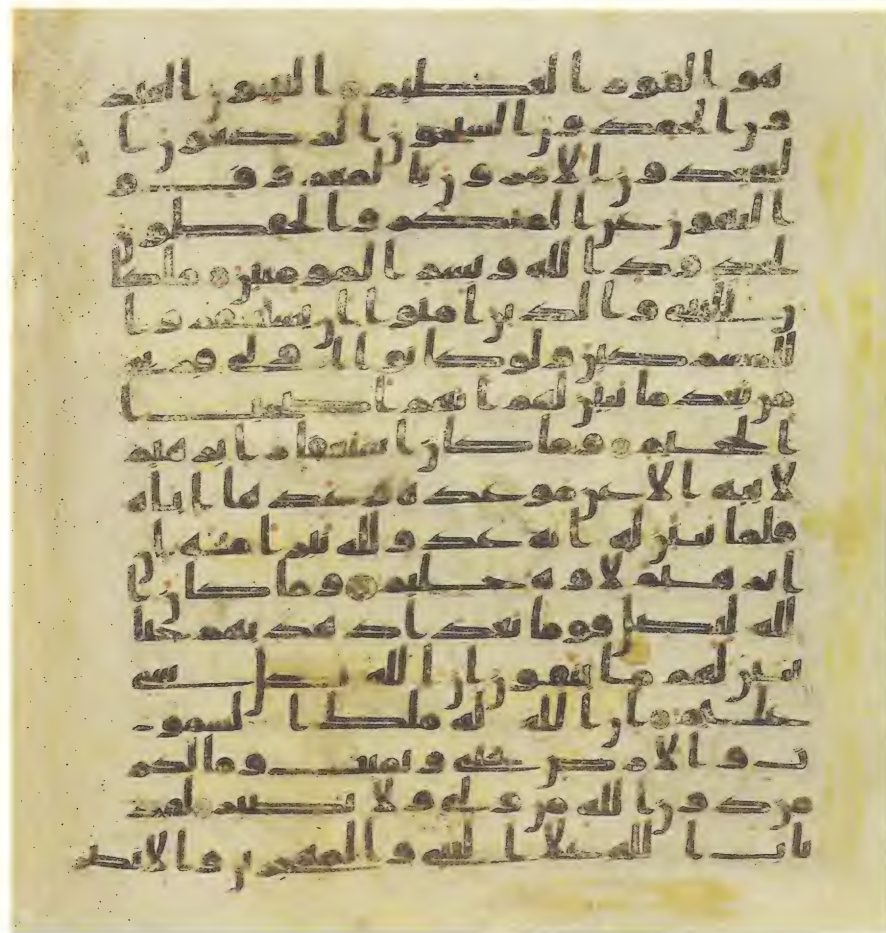 هو الفوز العظيم التئبون العبد
ون الحمدون السئحون الركعون ا
لسجدون الامرون بالمعروف و
الناهون عن المنكر والحفظون
لحدود الله وبشر المومنين ما كا
ن للنبي والذين امنوا ان يستغفروا
للمشركين ولو كانوا اولي قربى
من بعد ما تبين لهم انهم اصحب
الجحيم وما كان استغفار ابرهيم
لابيه الا عن موعدة وعدها اياه
فلما تبين له انه عدو لله تبرا منه ان
ابرهيم لاوه حليم وما كان ا
لله ليضل قوما بعد اذ هديهم حتى
يبين لهم ما يتقون ان الله بكل شى
عليم ان الله له ملك السمو
ت والارض يحى ويميت وما لكم
من دون الله من ولى ولا نصير لقد
تاب الله على النبى والمهجرين والانصر